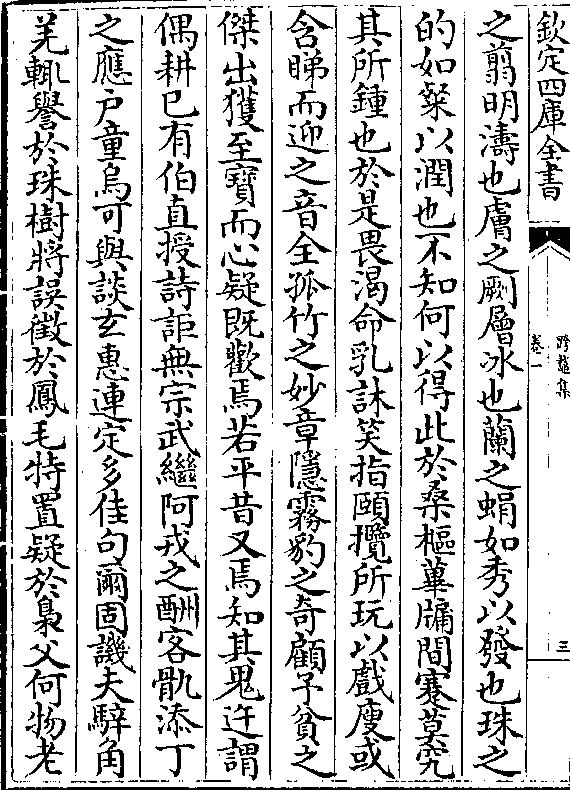 欽定四庫全書
跨鼇集
卷一
三
之翦明濤也膚之劂層冰也蘭之蜎如秀以發也珠之
的如粲以潤也不知何以得此於桑樞蓽牖間蹇莫究
其所鍾也於是畏渴命乳訹笑指頤攬所玩以戲廋或
含睇而迎之音全孤竹之妙章隱霧豹之奇顧子貧之
傑出獲至寶而心疑既歡焉若平昔又焉知其鬼迕謂
偶耕已有伯直授詩詎無宗武繼阿戎之酬客骩添丁
之應户童烏可與談玄惠連定多佳句爾固譏夫騂角
羌輒譽於珠樹將誤徵於鳳毛特置疑於梟父何物老